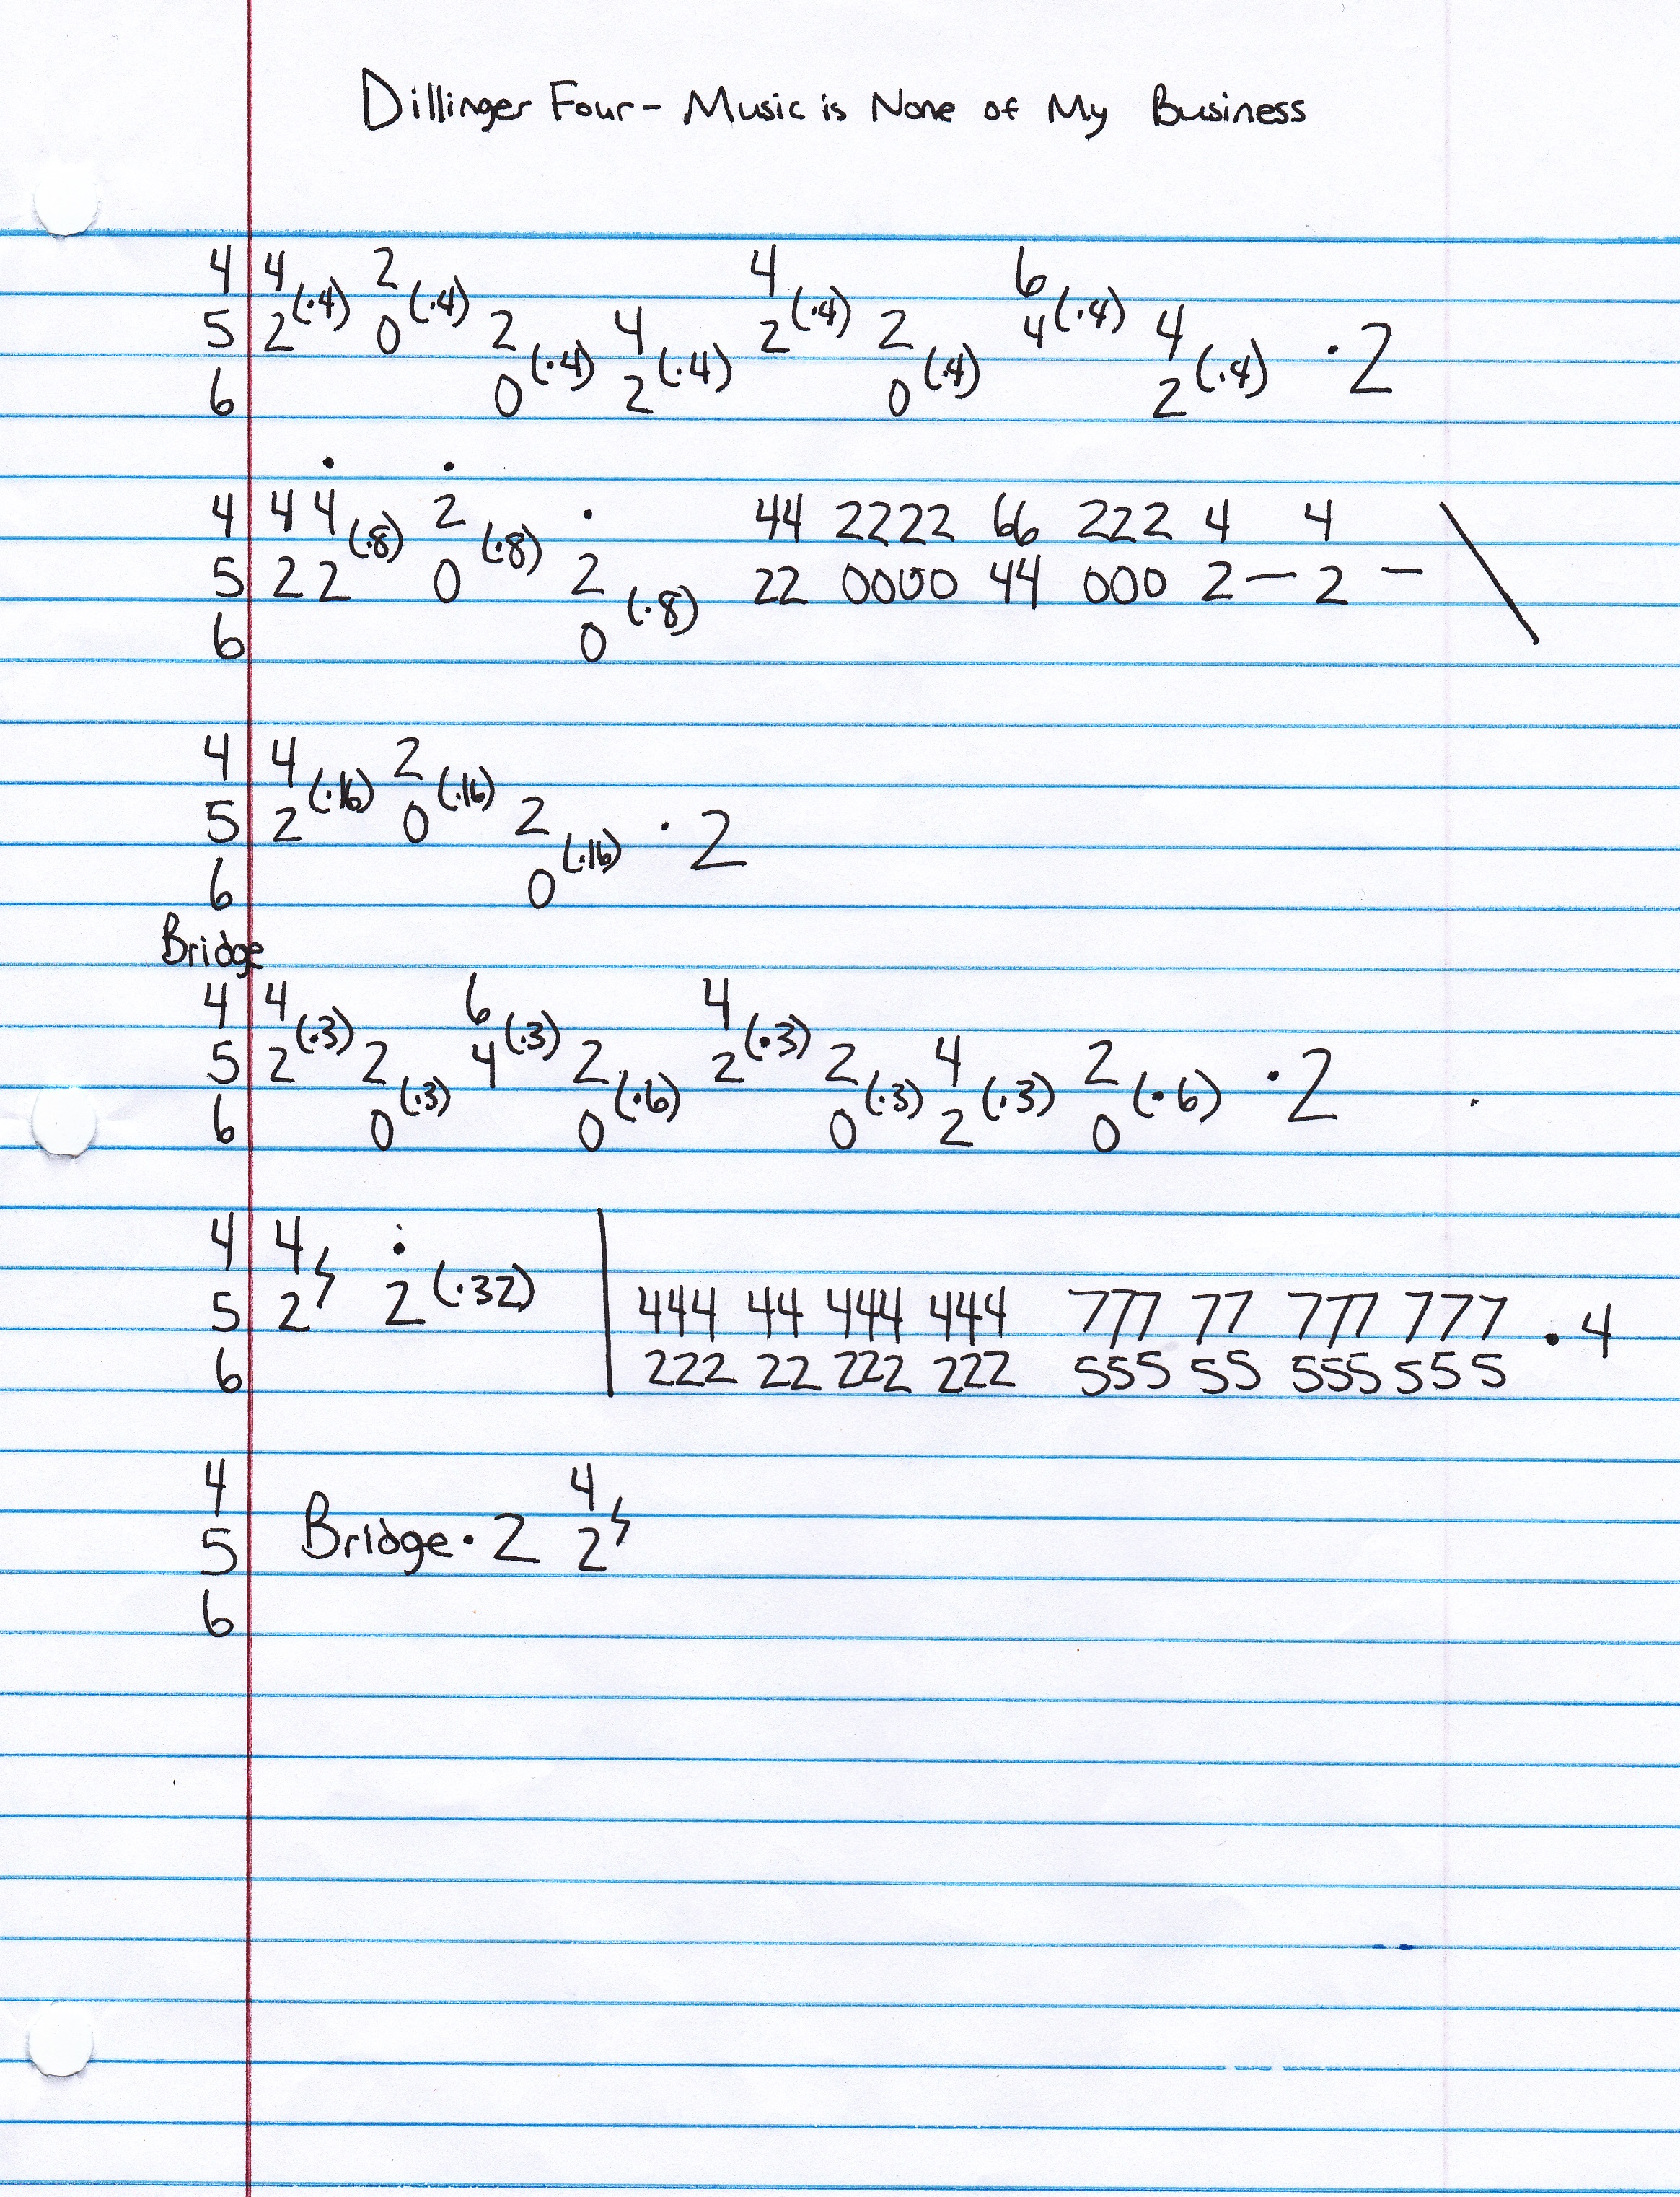 Dillinger Four - Music is None of My Business
4 4 (·4) 2 (·4) 4 (·4) 6 (·4)
5 2 0 2 (·4) 4 (·4) 2 2 (·4) 4 4 (·4) · 2
6 0 2 0 2
4 4 4 (·8) 2 (·8) 44 2222 66 222 4 4 \
5 2 2 0 2 (·8) 22 0000 44 000 2 — 2 —
6 0
4 4 (·16) 2 (·16)
5 2 0 2 (·16) · 2
6 0
Bridge
4 4 (·3) 6 (·3) 4 (·3)
5 2 2 (·3) 4 2 (·6) 2 2 (·3) 4 (·3) 2 (·6) · 2
6 0 0 0 2 0
4 4
5 2 2 (·32) | 444 44 444 444 777 77 777 777 · 4
6 222 22 222 222 555 55 555 555
4 4
5 Bridge · 2 2
6